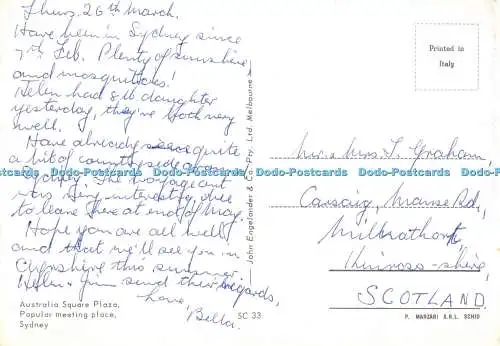 Thurs. 26th March.
Have been in Sydney since
7th Feb. Plenty of sunshine
and mosquitoes!
Helen had 8 lb daughter
yesterday, they're both very
well.
Have already quite
a bit of countryside around
Sydney. The voyage out
was very interesting, due
to leave here at end of May.
Hope you are all well
and that we'll see you in
Ayrshire this summer.
Helen & Jim send their regards,
Love,
Bella.
Australia Square Plaza,
Popular meeting place,
Sydney
SC 33
John Engelander & Co. Pty. Ltd. Melbourne
Printed in
Italy
Mr & Mrs J. Graham,
Carsaig, Manse Rd.,
Milnathort,
Kinross-shire,
SCOTLAND.
P. MARZARI S.R.L. SCHIO
Dodo-Postcards Dodo-Postcards Dodo-Postcards Dodo-Postcards Dodo-Postcards